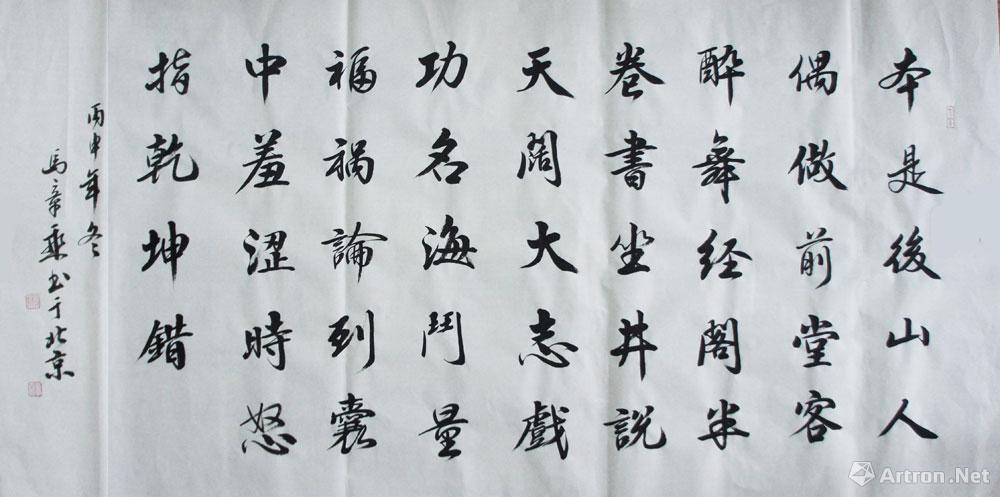 本是後山人
偶做前堂客
醉舞经阁半
卷書坐井説
天阔大志戲
功名海鬥量
福祸論到囊
中羞涩時怒
指乾坤錯
丙申年冬
馬章乘书于北京
Artron.Net